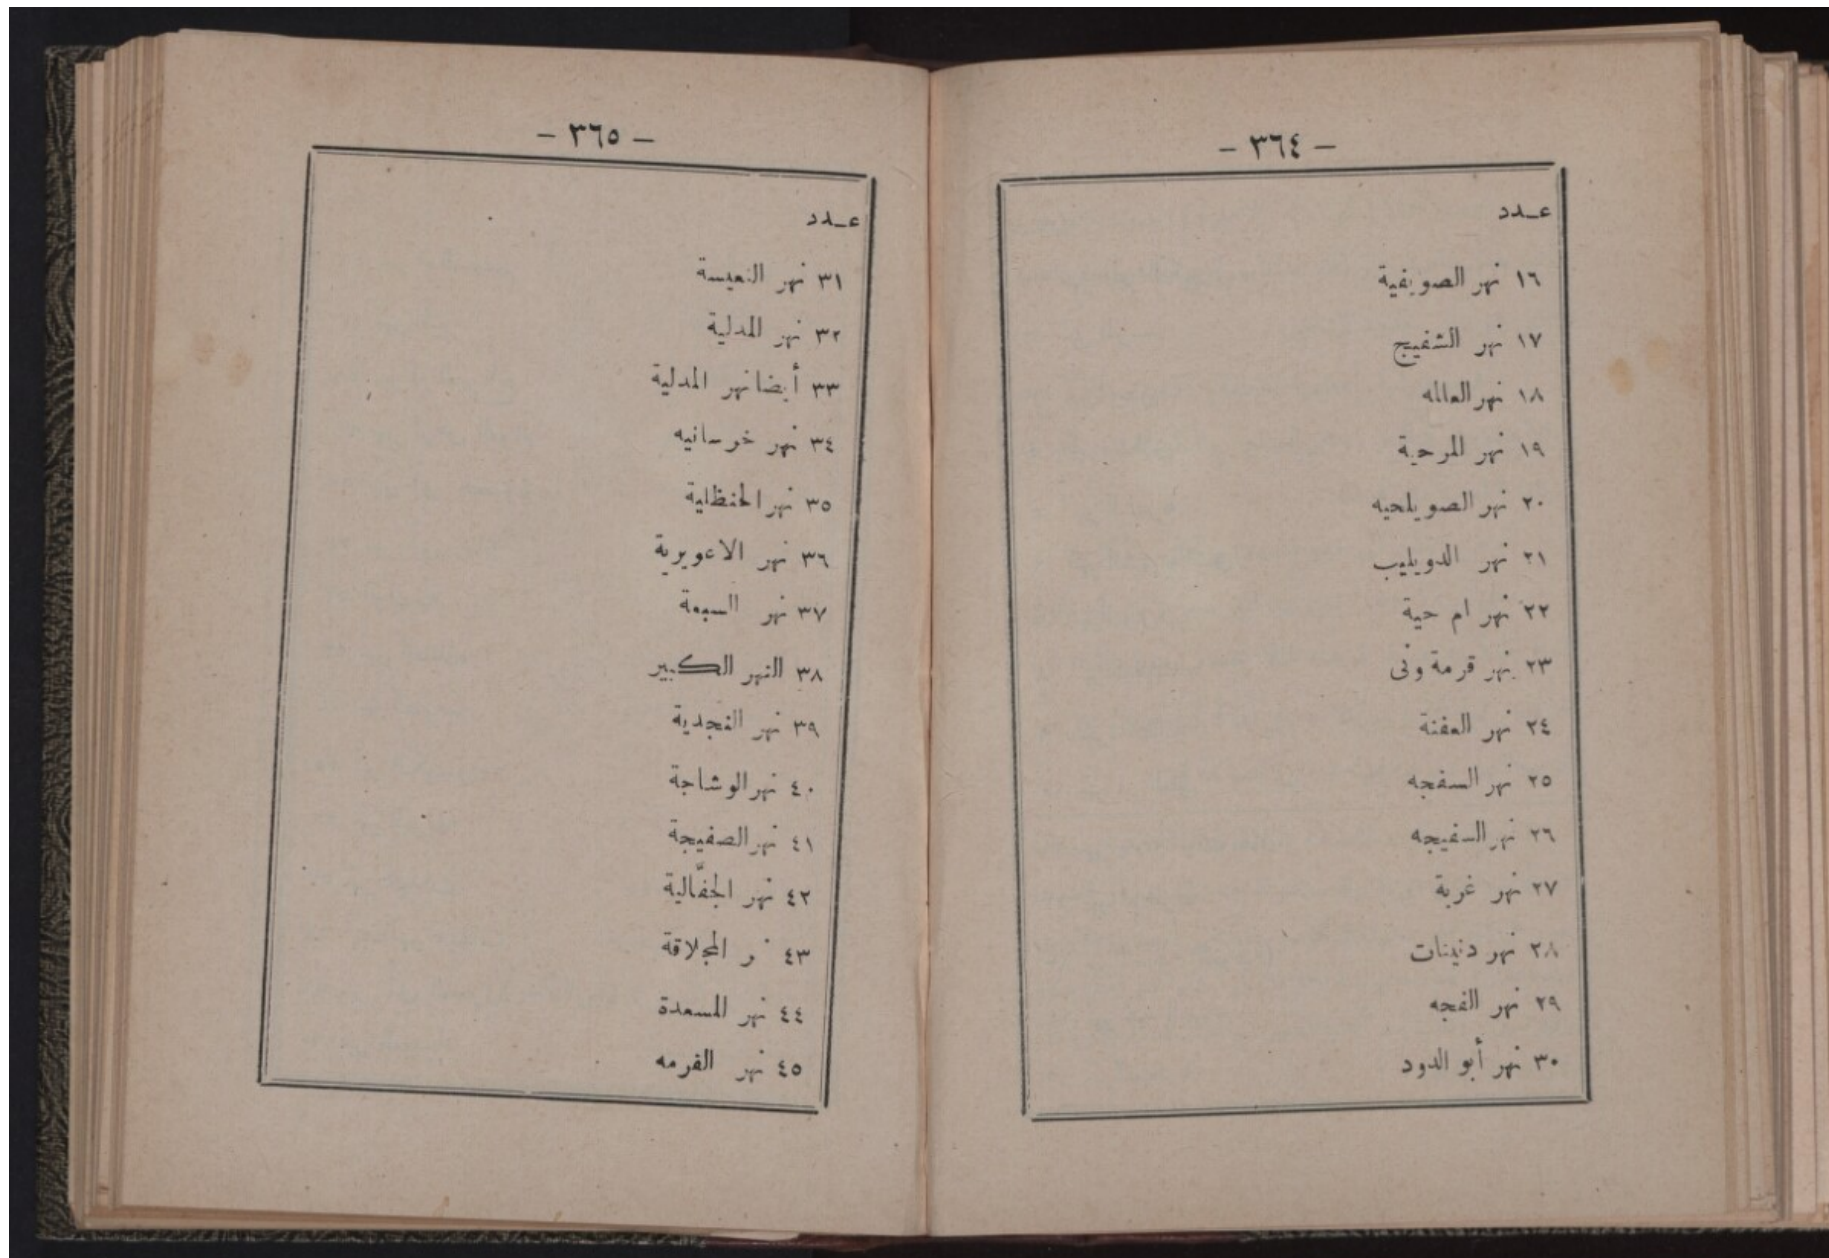 - ٣٦٤ -
عـدد
١٦ نهر الصويفية
١٧ نهر الشفيج
١٨ نهر العالمه
١٩ نهر المرحية
٢٠ نهر الصويلحيه
٢١ نهر الدويليب
٢٢ نهر ام حية
٢٣ نهر قرمة ونى
٢٤ نهر العفنة
٢٥ نهر السفجه
٢٦ نهر السفيجه
٢٧ نهر غربة
٢٨ نهر دنينات
٢٩ نهر الفجه
٣٠ نهر أبو الدود
- ٣٦٥ -
عـدد
٣١ نهر النعيسة
٣٢ نهر المدلية
٣٣ أيضا نهر المدلية
٣٤ نهر خرسانيه
٣٥ نهر الحنظلية
٣٦ نهر الاعويرية
٣٧ نهر السبعة
٣٨ النهر الكبير
٣٩ نهر الفجدية
٤٠ نهر الوشاجة
٤١ نهر الصفيجة
٤٢ نهر الجفّالية
٤٣ ر المجلاقة
٤٤ نهر المسعدة
٤٥ نهر القرمه